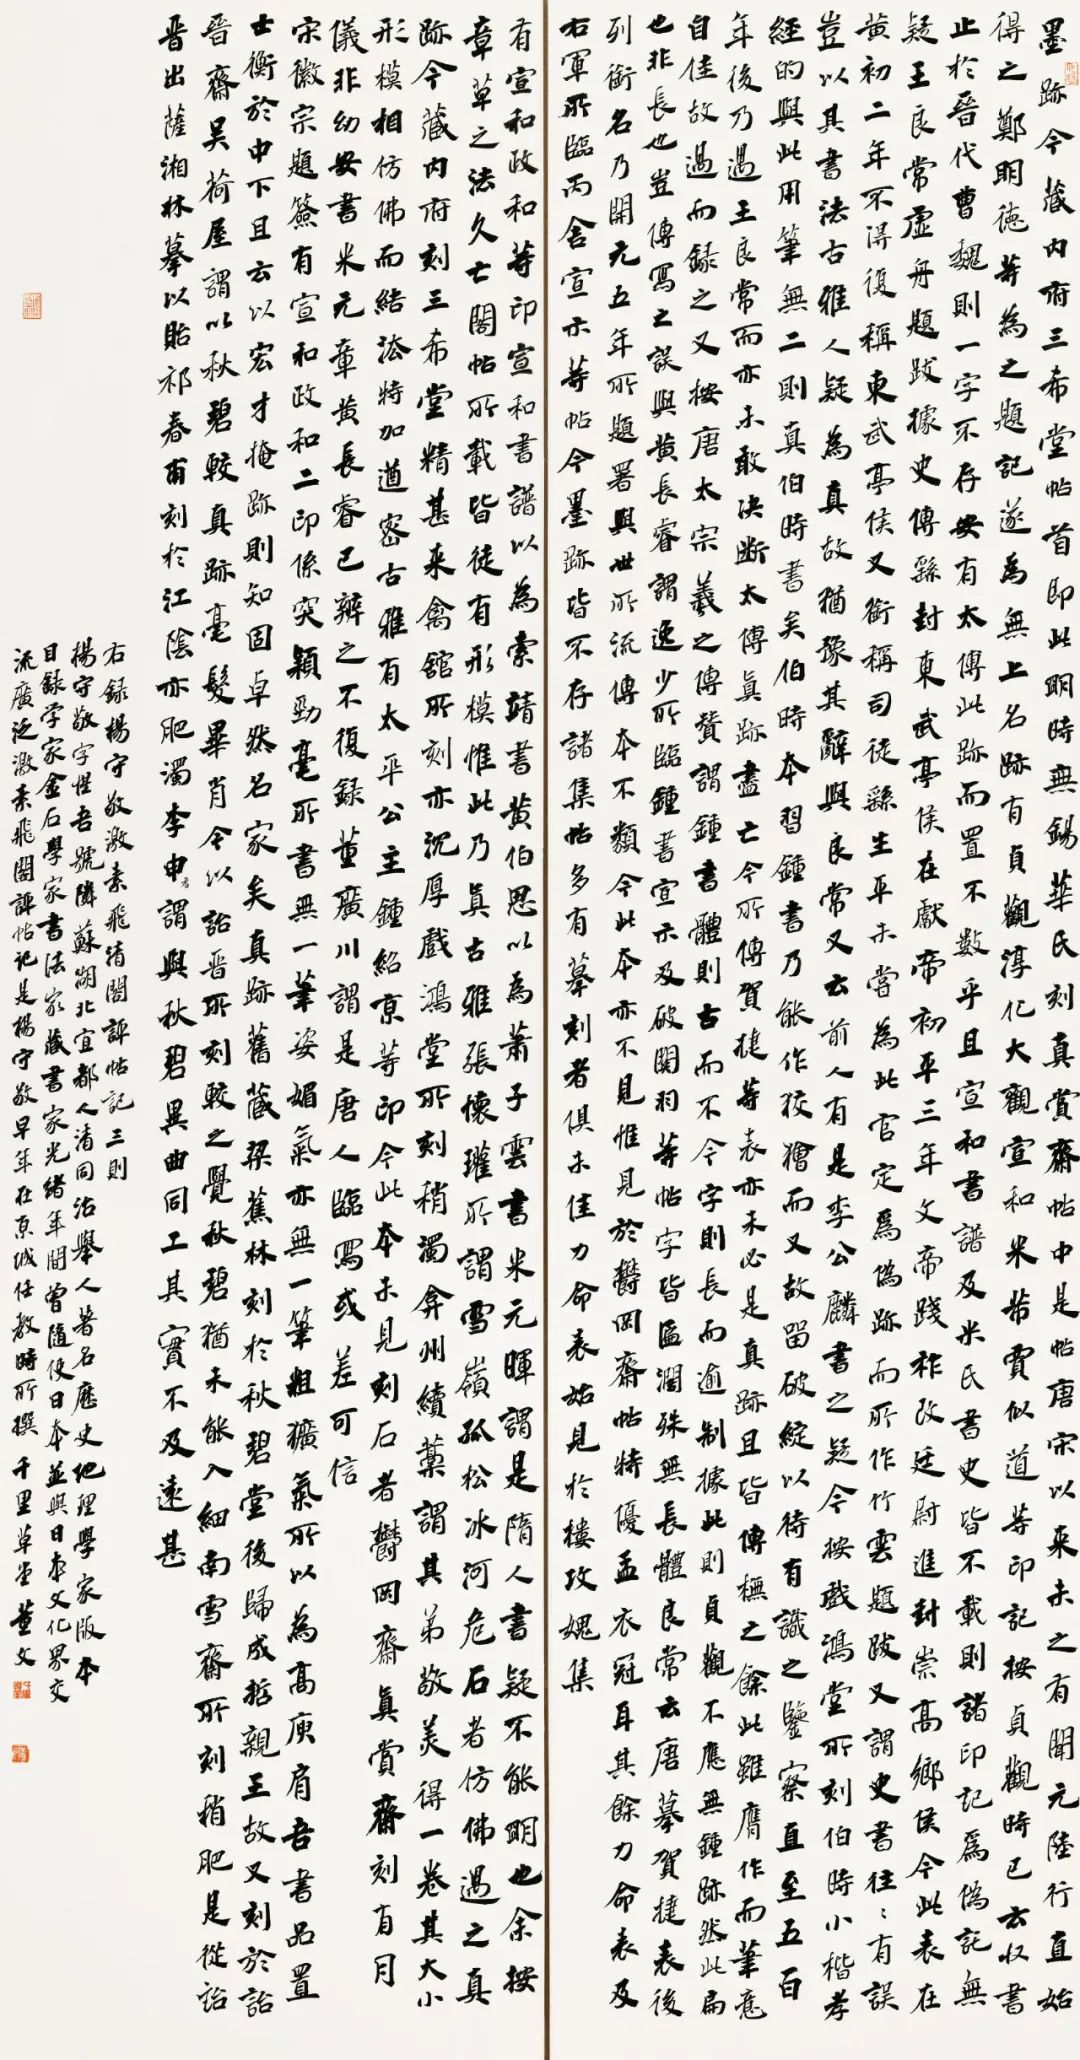 墨跡今藏內府三希堂帖首即此明時無錫華氏刻真賞齋帖中是帖唐宋以來未之有聞元陸行直始
得之鄭明德等為之題記遂為無上名跡有貞觀淳化大觀宣和米芾賈似道等印記按貞觀時已云收書
止於晉代曹魏則一字不存安有太傅此跡而置不數乎且宣和書譜及米氏書史皆不載則諸印記為偽託無
疑王良常虛舟題跋據史傳繇封東武亭侯在獻帝初平三年文帝踐祚改廷尉進封崇高鄉侯今此表在
黃初二年不得復稱東武亭侯又銜稱司徒繇生平未嘗為此官定為偽跡而所作竹雲題跋又謂史書往往有誤
豈以其書法古雅人疑為真故猶豫其辭與良常又云前人有是李公麟書之疑今按戲鴻堂所刻伯時小楷孝
經的與此用筆無二則真伯時書矣伯時本習鍾書乃能作狡獪而又故留破綻以待有識之鑒察直至五百
年後乃遇王良常而亦未敢決斷太傅真跡盡亡今所傳賀捷等表亦未必是真跡且皆傳橅之餘此雖膺作而筆意
自佳故過而錄之又按唐太宗羲之傳贊謂鍾書體則古而不今字則長而逾制據此則貞觀不應無鍾跡然此扁
也非長也豈傳寫之誤與黃長睿謂逸少所臨鍾書宣示及破關羽等帖字皆匾濶殊無長體良常云唐摹賀捷表後
列銜名乃開元五年所題署與世所流傳本不類今此本亦不見惟見於鬱岡齋帖特優孟衣冠耳其餘力命表及
右軍所臨丙舍宣示等帖今墨跡皆不存諸集帖多有摹刻者俱未佳力命表始見於樓攻媿集
有宣和政和等印宣和書譜以為索靖書黃伯思以為蕭子雲書米元暉謂是隋人書疑不能明也余按
章草之法久亡閣帖所載皆徒有形模惟此乃真古雅張懷瓘所謂雪嶺孤松冰河危石者仿佛遇之真
跡今藏內府刻三希堂精甚來禽館所刻亦沉厚戲鴻堂所刻稍濁弇州續藁謂其弟敬美得一卷其大小
形模相仿佛而結法特加遒密古雅有太平公主鍾紹京等印今此本未見刻石者鬱岡齋真賞齋刻有月
儀非幼安書米元章黃長睿已辨之不復錄董廣川謂是唐人臨寫或差可信
宋徽宗題籤有宣和政和二印係突穎勁毫所書無一筆姿媚氣亦無一筆粗獷氣所以為高庾肩吾書品置
士衡於中下且云以宏才掩跡則知固卓然名家矣真跡舊藏梁蕉林刻於秋碧堂後歸成哲親王故又刻於詒
晉齋吳荷屋謂以秋碧較真跡毫髮畢肖今以詒晉所刻較之覺秋碧猶未能入細南雪齋所刻稍肥是從詒
晉出薩湘林摹以貽祁春甫刻於江陰亦肥濁李申耆謂與秋碧異曲同工其實不及遠甚
右錄楊守敬激素飛清閣評帖記三則
楊守敬字惺吾號鄰蘇湖北宜都人清同治舉人著名歷史地理學家版本
目錄學家金石學家書法家藏書家光緒年間曾隨使日本並與日本文化界交
流廣泛激素飛閣評帖記是楊守敬早年在京城任教時所撰 千里草堂 董文